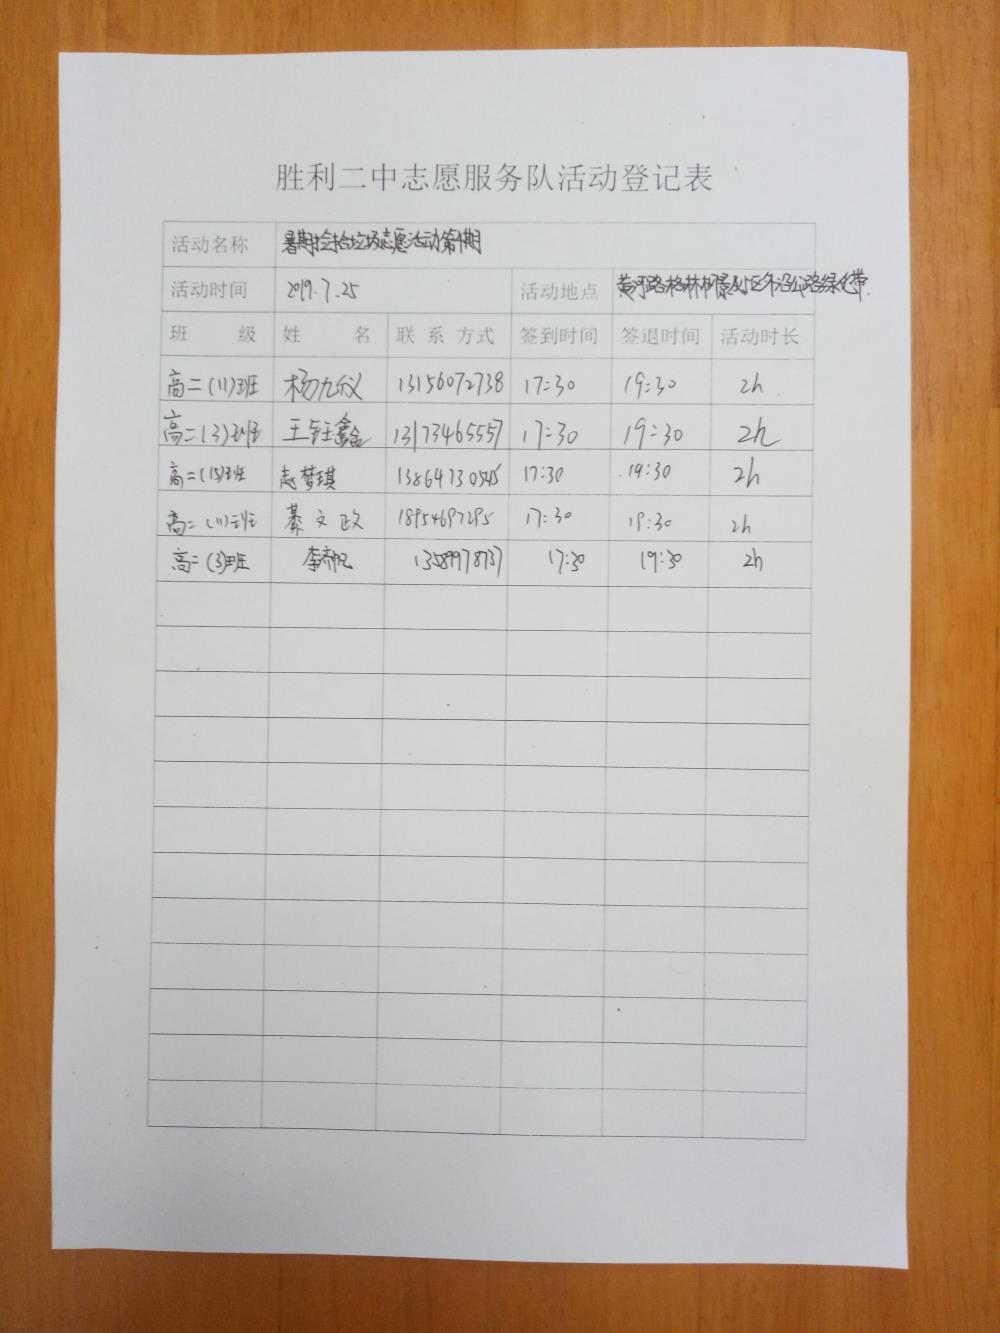 胜利二中志愿服务队活动登记表
活动名称 暑期捡拾垃圾志愿活动第1期
活动时间 2019.7.25 活动地点 黄河路格林小区外沿公路绿化带
班 级 姓 名 联 系 方式 签到时间 签退时间 活动时长
高二(11)班 杨九仪 13156072738 17:30 19:30 2h
高二(3)班 王钰鑫 13173465557 17:30 19:30 2h
高二(15)班 赵梦琪 13864730545 17:30 19:30 2h
高二(11)班 綦文政 18954697295 17:30 19:30 2h
高二(3)班 李帆 13589978737 17:30 19:30 2h